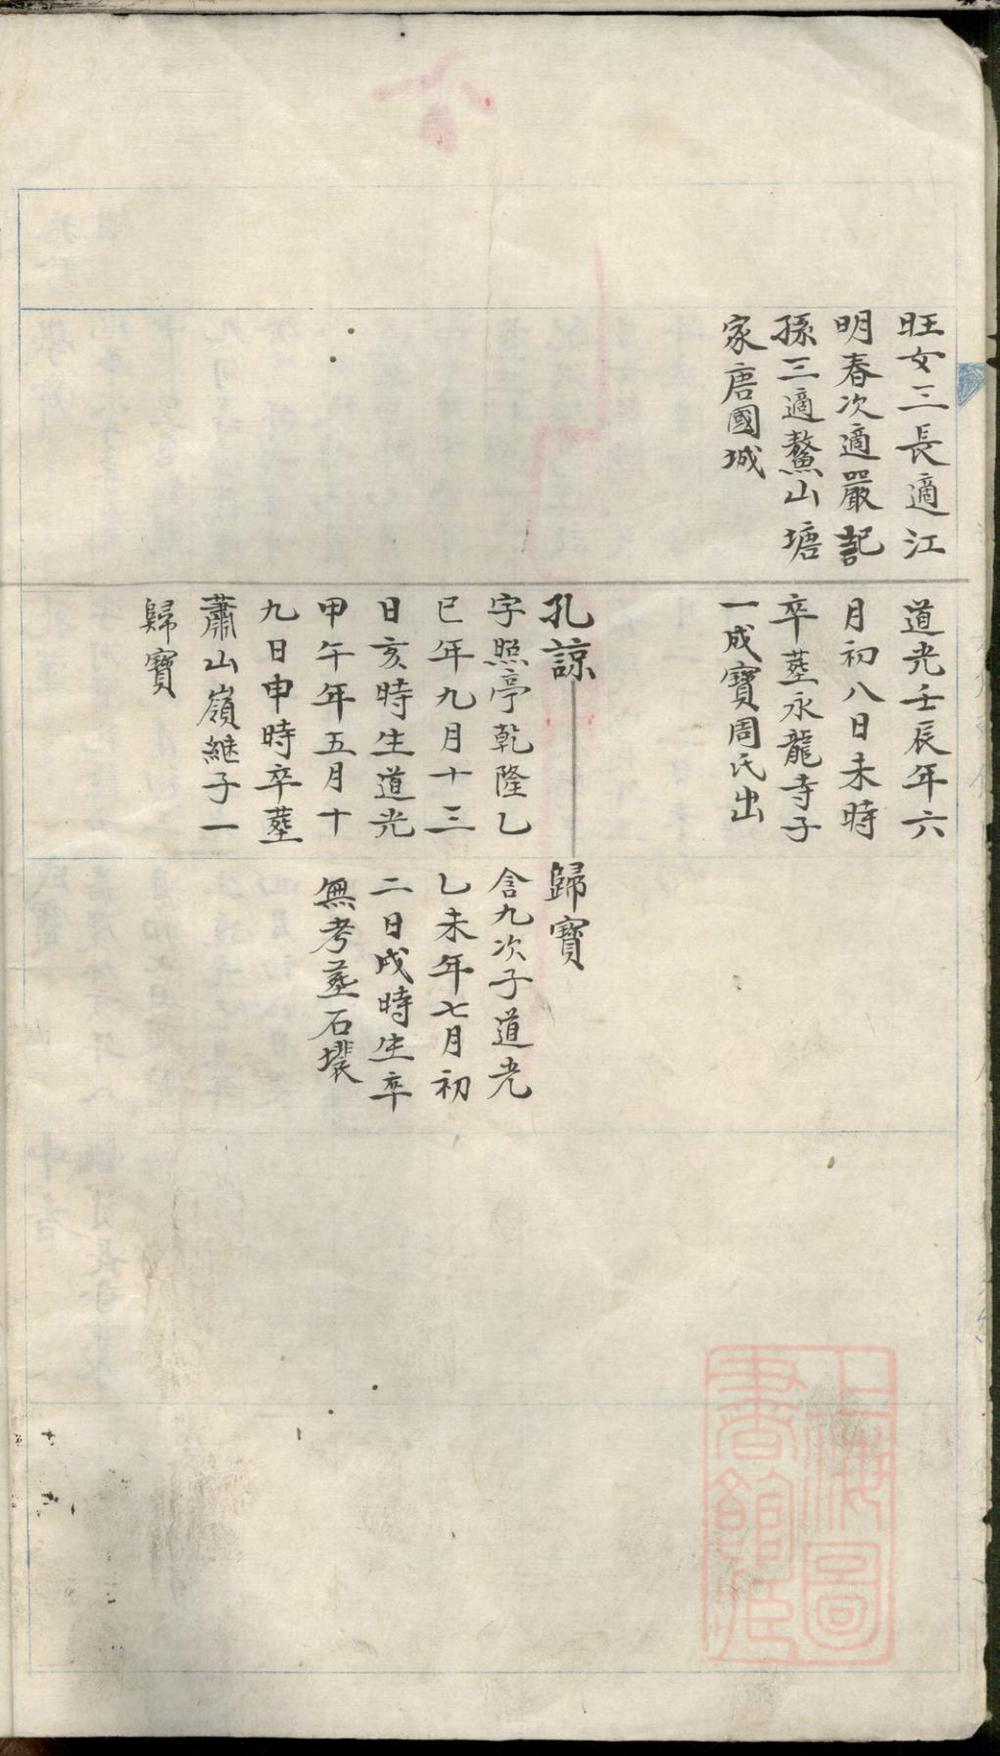 旺女三長適江
明春次適嚴記
孫三適鰲山塘
家唐國城
道光壬辰年六
月初八日未時
卒塟永龍寺子
一成寶周氏出
孔諒
字照亭乾隆乙
巳年九月十三
日亥時生道光
甲午年五月十
九日申時卒塟
蕭山嶺継子一
歸寶
歸寶
含九次子道光
乙未年七月初
二日戌時生卒
無考塟石壪
上海圖
書館藏